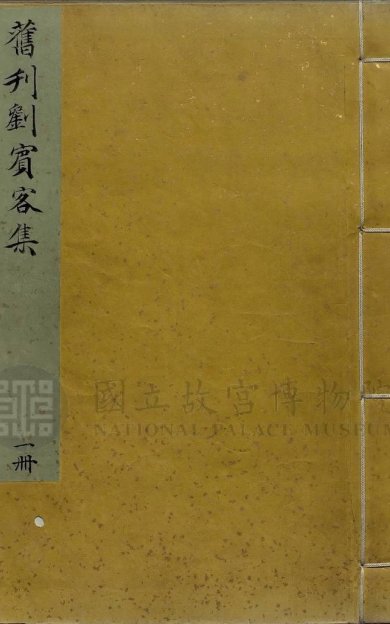 舊刊劉賓客集
一冊
國立故宮博物院
NATIONAL PALACE MUSEUM